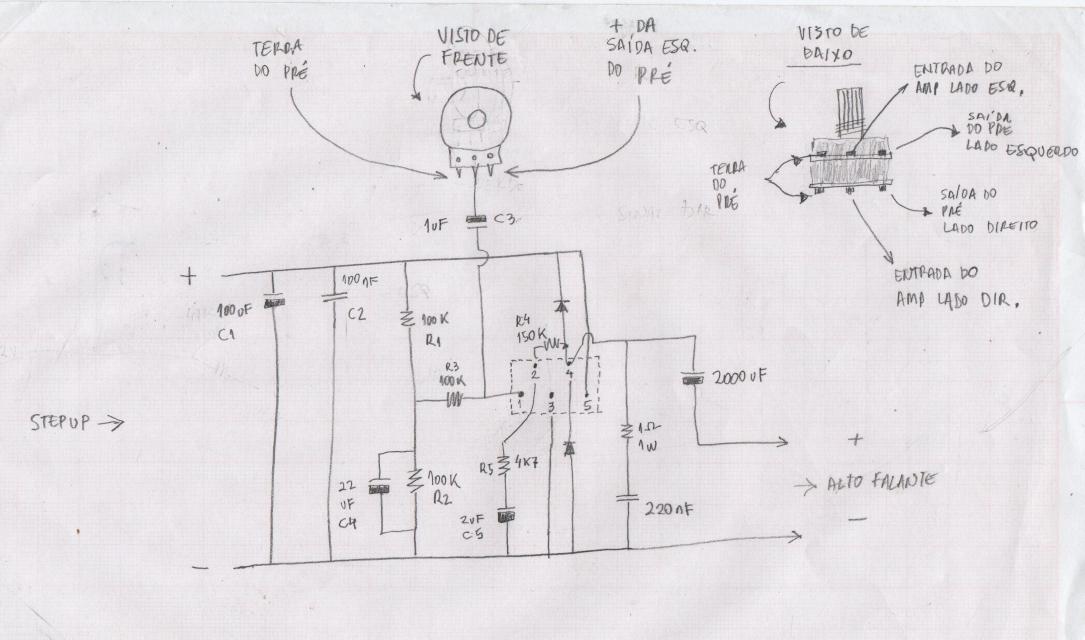 TERRA
DO PRÉ
VISTO DE
FRENTE
+ DA
SAÍDA ESQ.
DO PRÉ
VISTO DE
BAIXO
ENTRADA DO
AMP LADO ESQ.
SAÍDA
DO PRÉ
LADO ESQUERDO
TERRA
DO
PRÉ
SAÍDA DO
PRÉ
LADO DIREITO
ENTRADA DO
AMP LADO DIR.
1uF C3
+
100uF
C1
100nF
C2
100K
R1
R4
150K
R3
100K
2 4
1 3 5
2000uF
STEPUP →
1Ω
1W
R5 4K7
100K
R2
22
uF
C4
2uF
C5
220nF
+
→ ALTO FALANTE
−
−